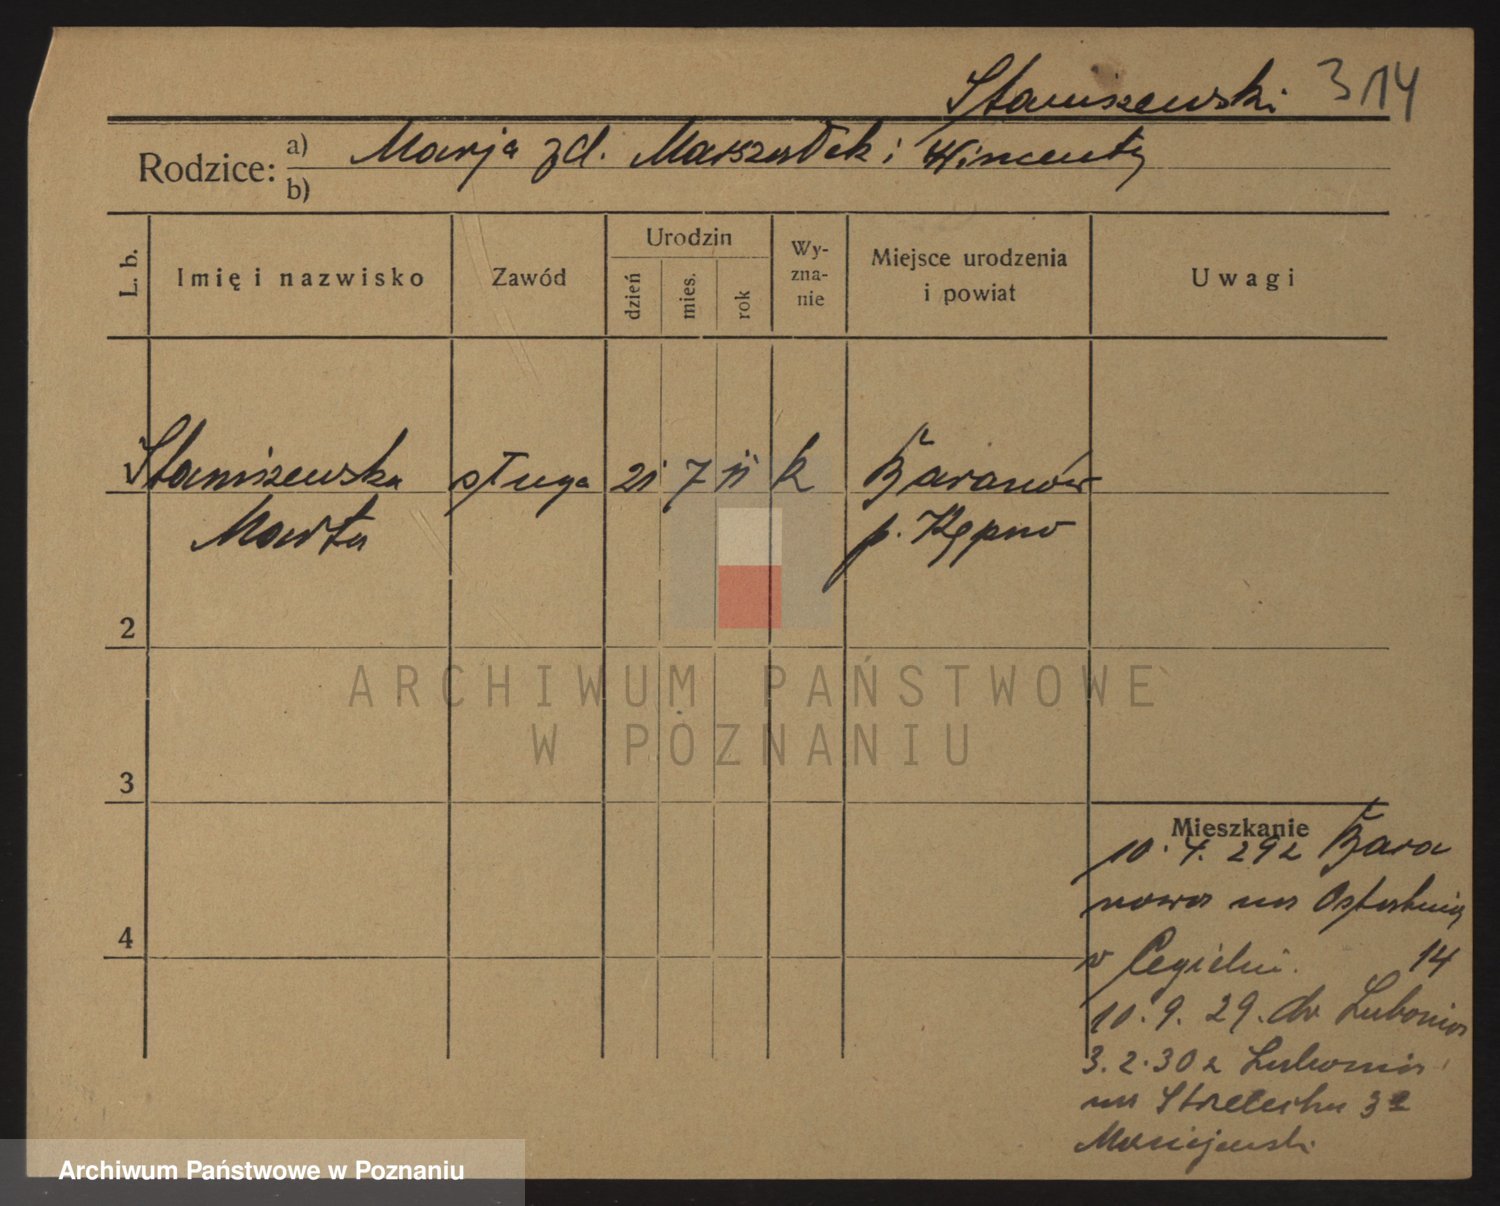 Staniszewski 314
Rodzice: a) Marja zd. Marszałek i Wincenty
b)
L. b.
Imię i nazwisko
Zawód
Urodzin
dzień
mies.
rok
Wy-
zna-
nie
Miejsce urodzenia
i powiat
Uwagi
Staniszewska sługa 21 7 11 k Baranów
Marta p. Kępno
2
ARCHIWUM PAŃSTWOWE
W POZNANIU
3
Mieszkanie
10. 4. 29 z Bara
nowa na
4
v Cegielni. 14
10. 9. 29. do Lubonia
3. 2. 30 z Lubonia
na 3
Maciejewski
Archiwum Państwowe w Poznaniu